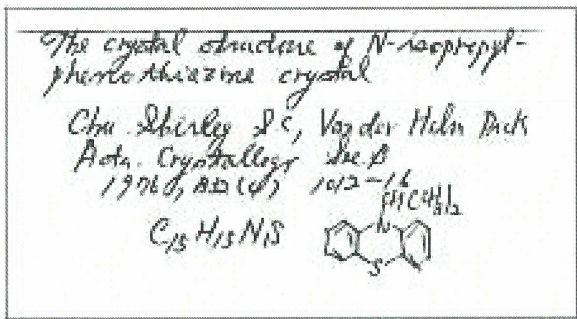 The crystal structure of N-isopropyl-
phenothiazine crystal
Chu Shirley S C, Van der Helm Dick
Acta. Crystallogr Sec B
1976, 32(4), 1012-16
CH(CH3)2
N
C15H15NS
S